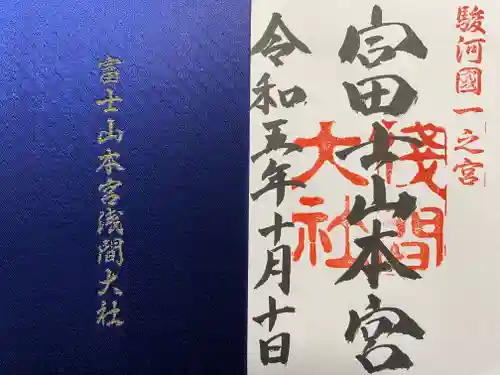 富士山本宮浅間大社
駿河國一之宮
富士山本宮
淺間
大社
令和五年十月十日